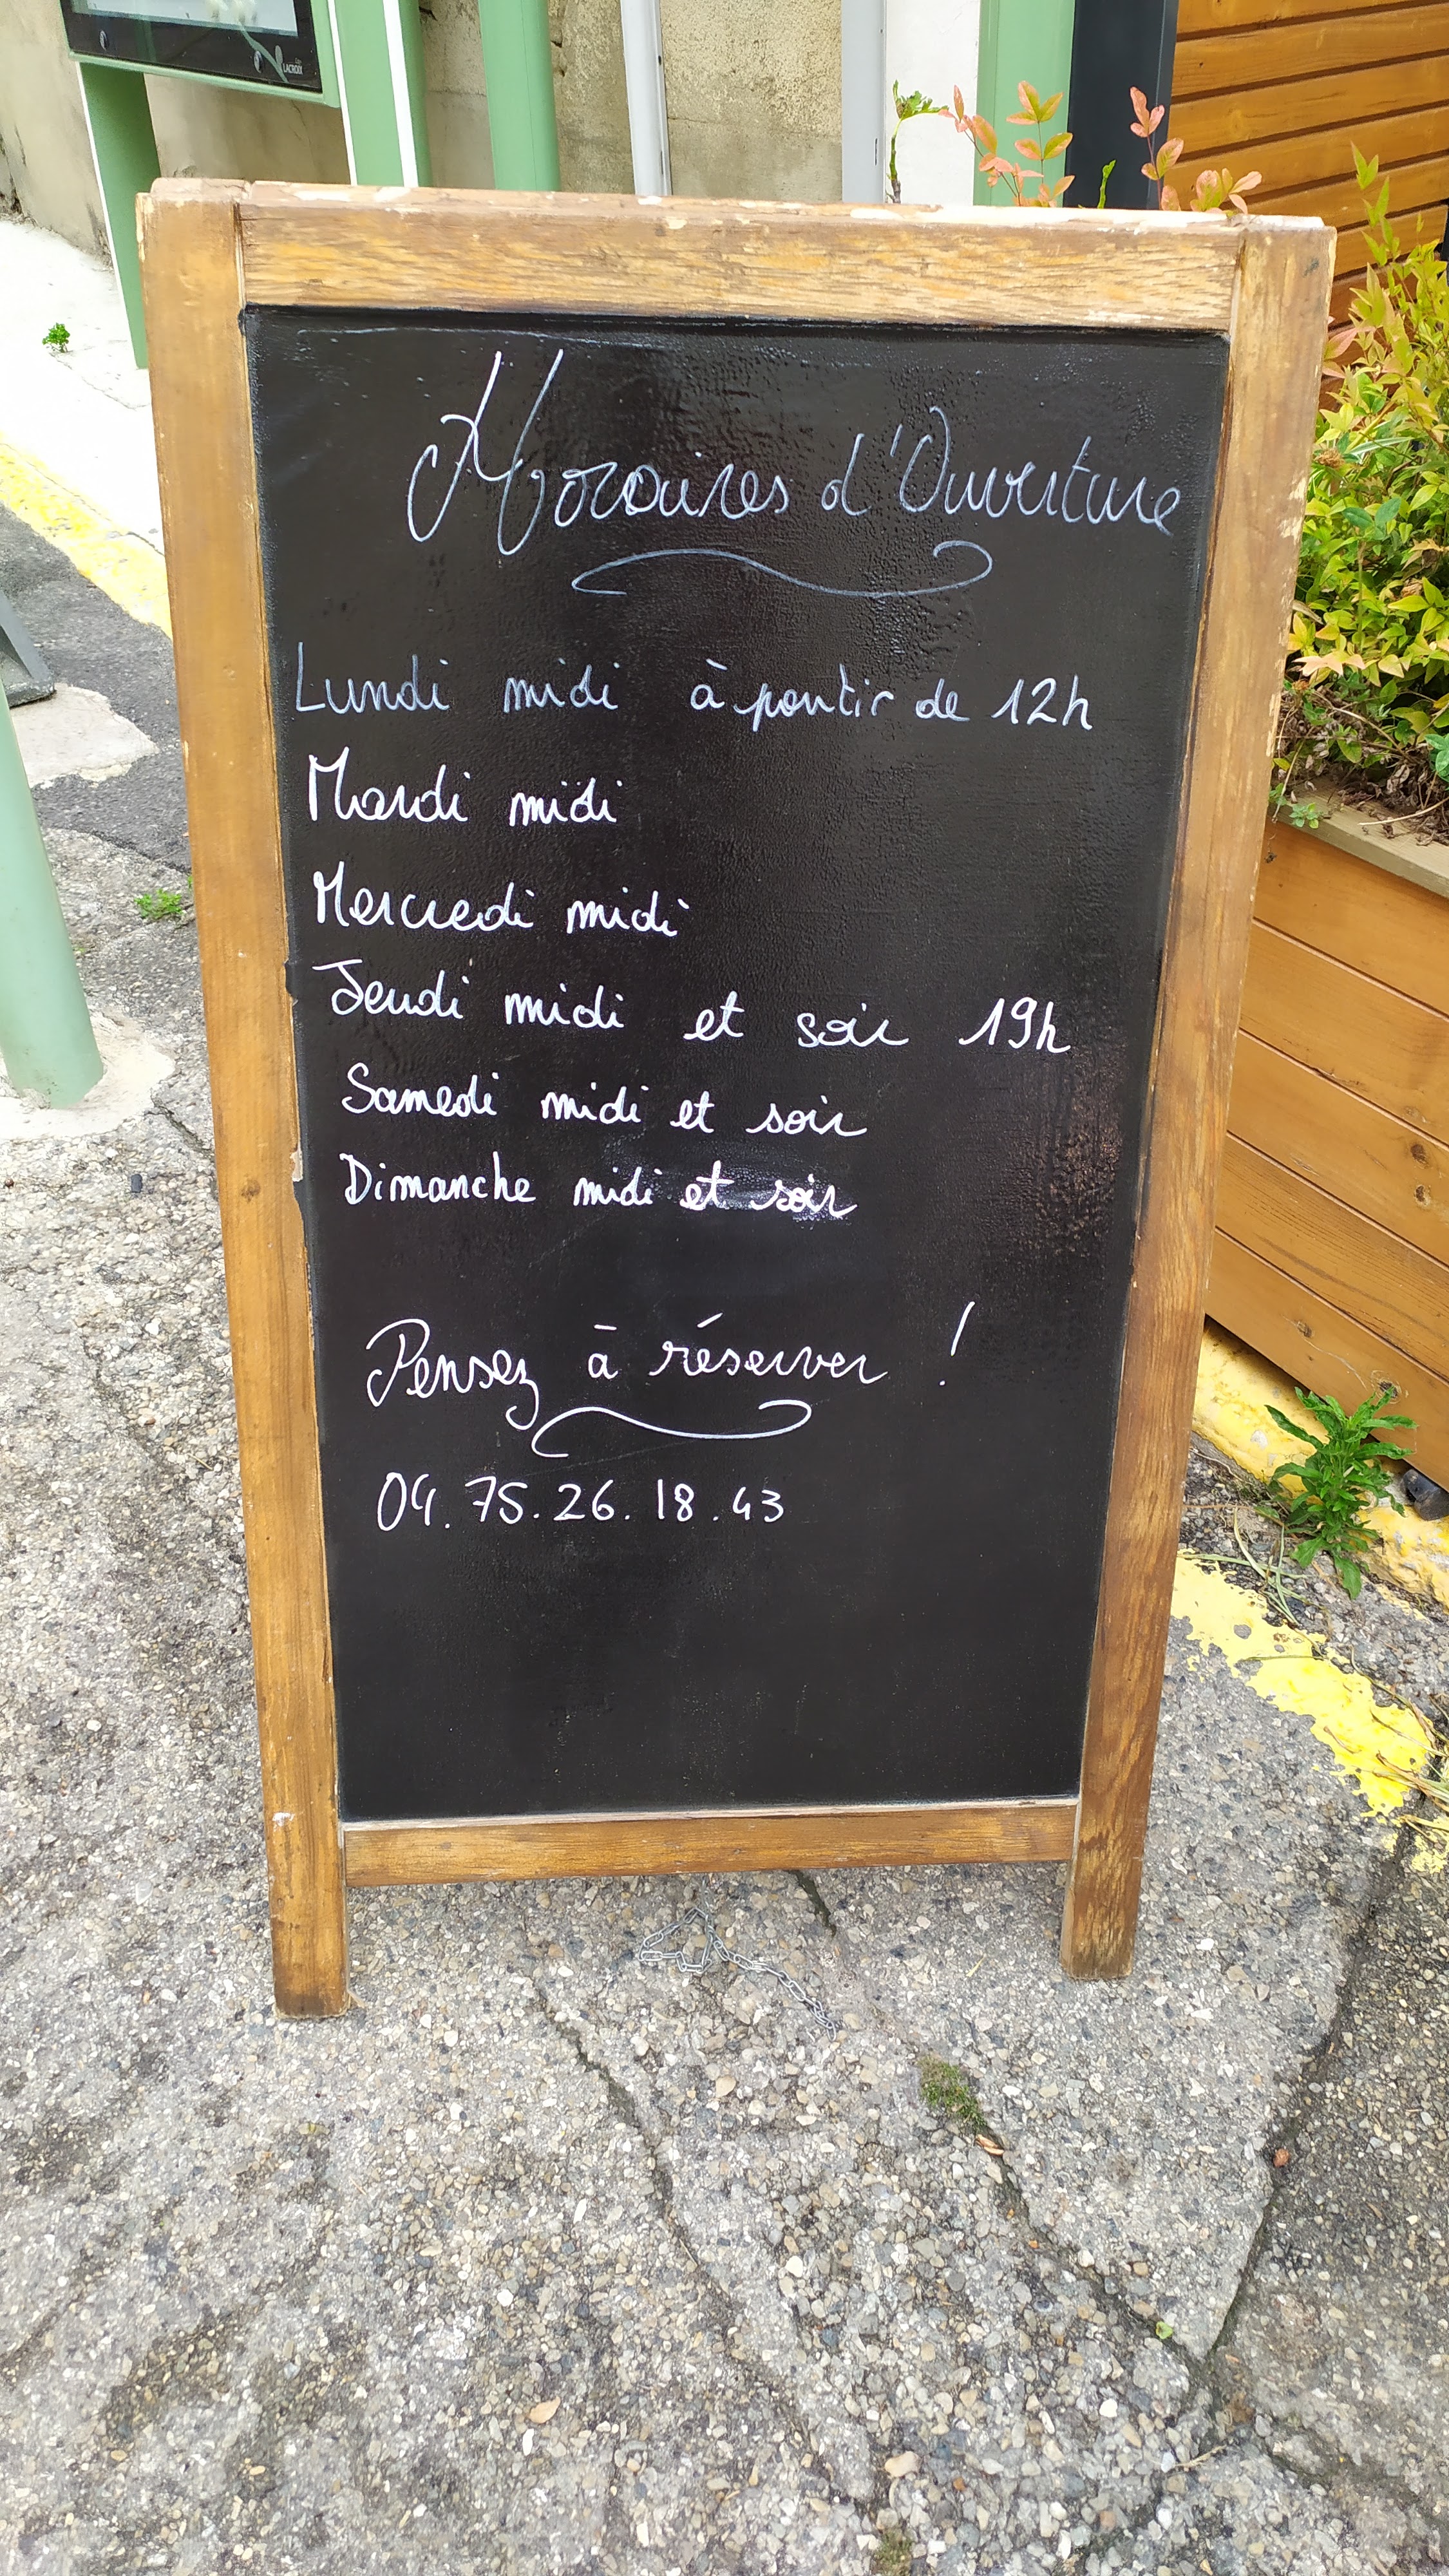 LACROIX
Horaires d'Ouverture
Lundi midi à partir de 12h
Mardi midi
Mercredi midi
Jeudi midi et soir 19h
Samedi midi et soir
Dimanche midi et soir
Pensez à réserver !
04.75.26.18.43